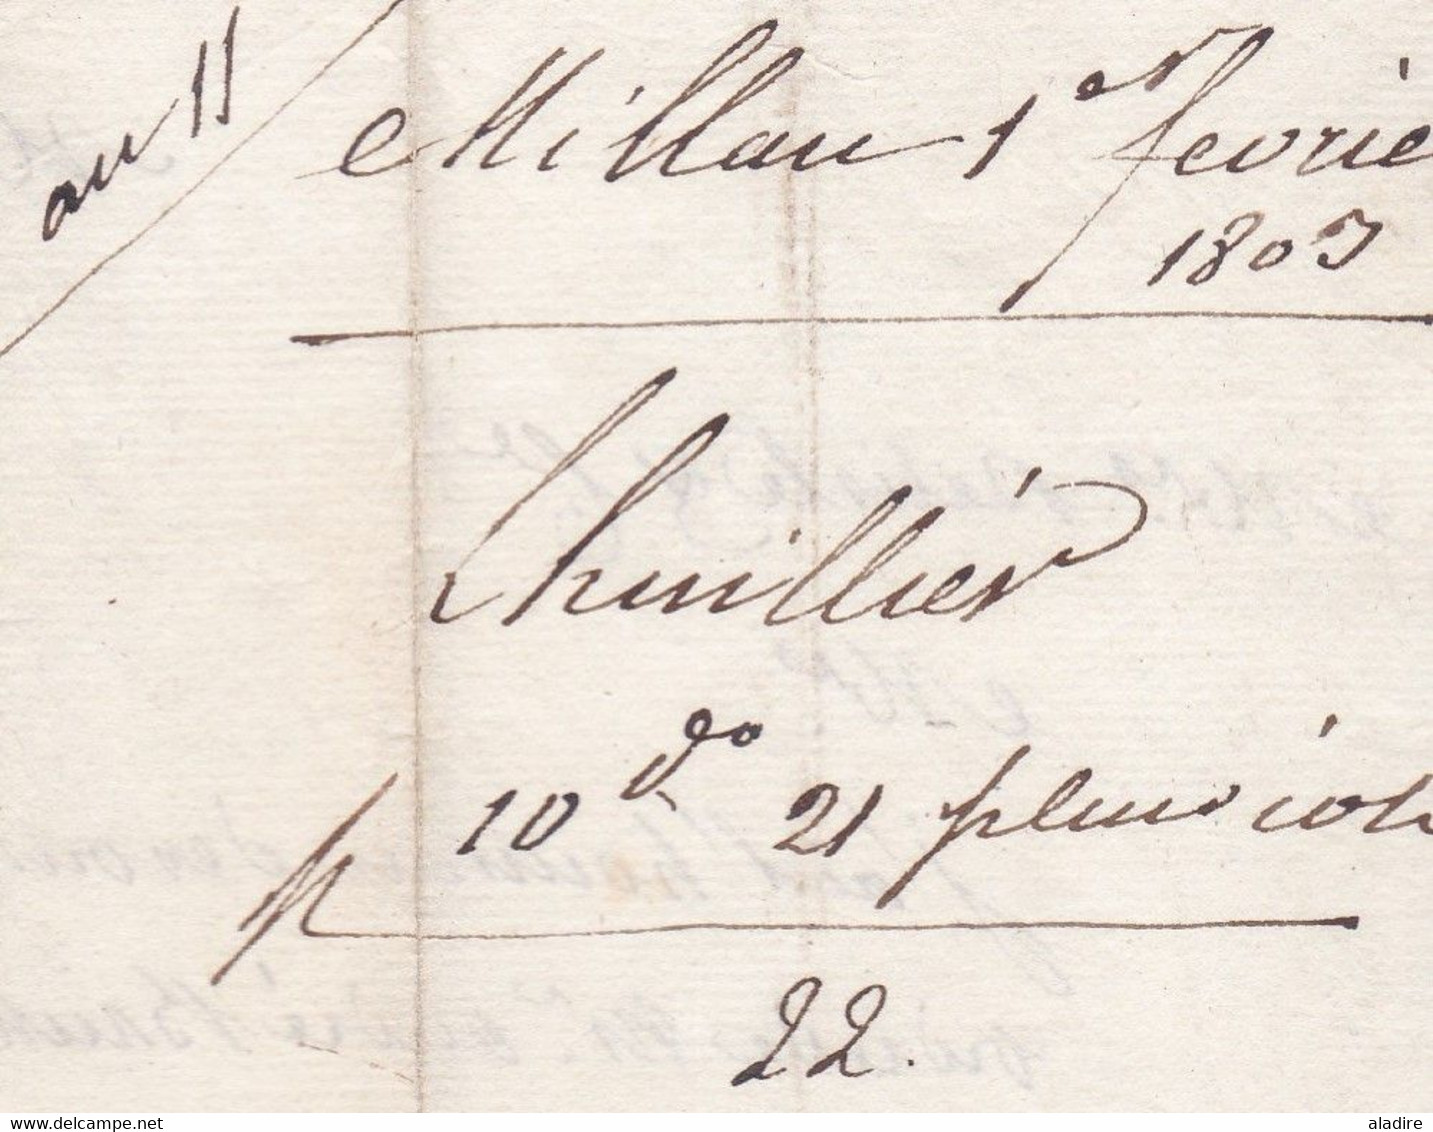 an 11
Millau 1er fevrie
1803
Lhuillier
10 do 21 pluviose
22.
www.delcampe.net
aladire